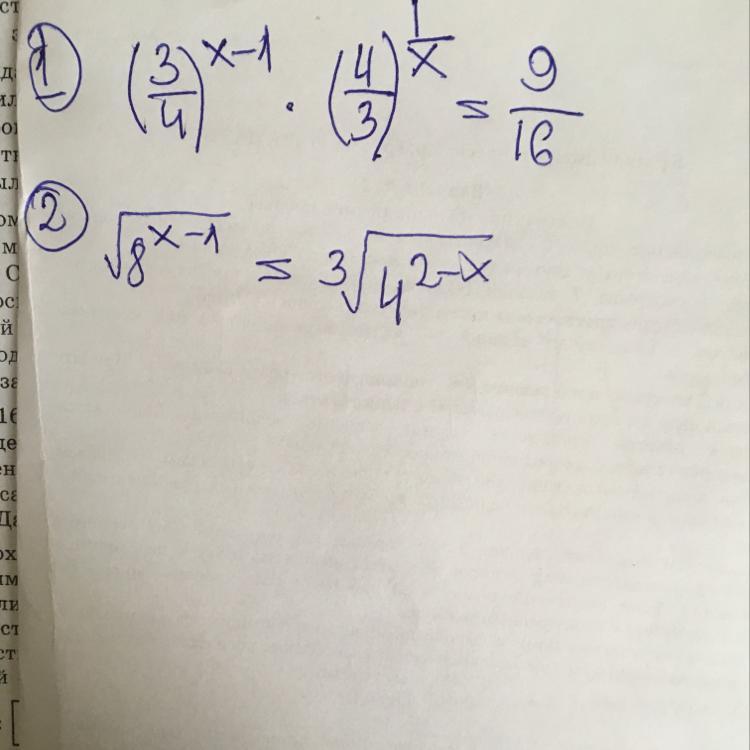 ① (3/4)^(x-1) · (4/3)^(1/x) = 9/16
② √(8^(x-1)) = ³√(4^(2-x))
16
й